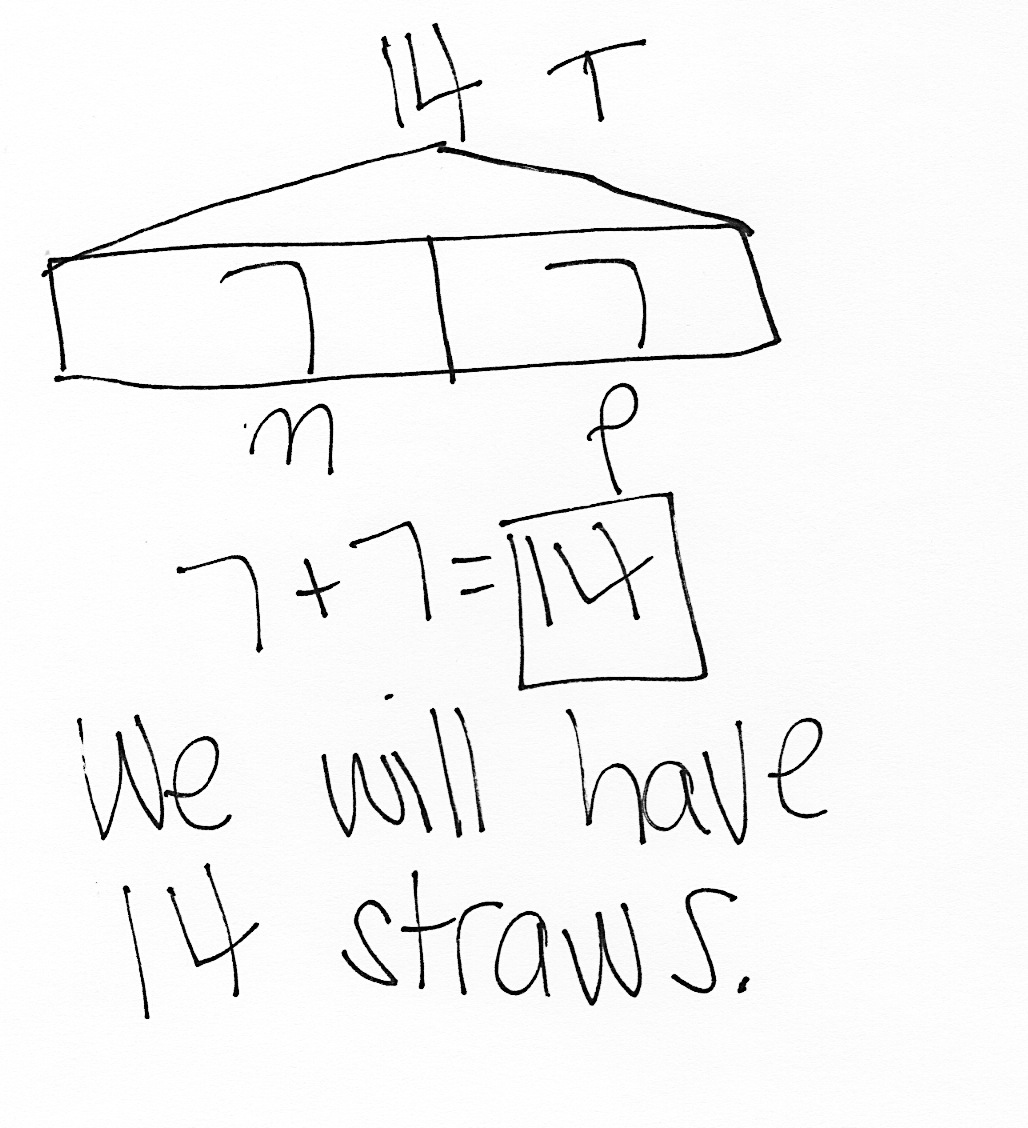 14 T
7 7
m p
7+7=14
We will have
14 straws.